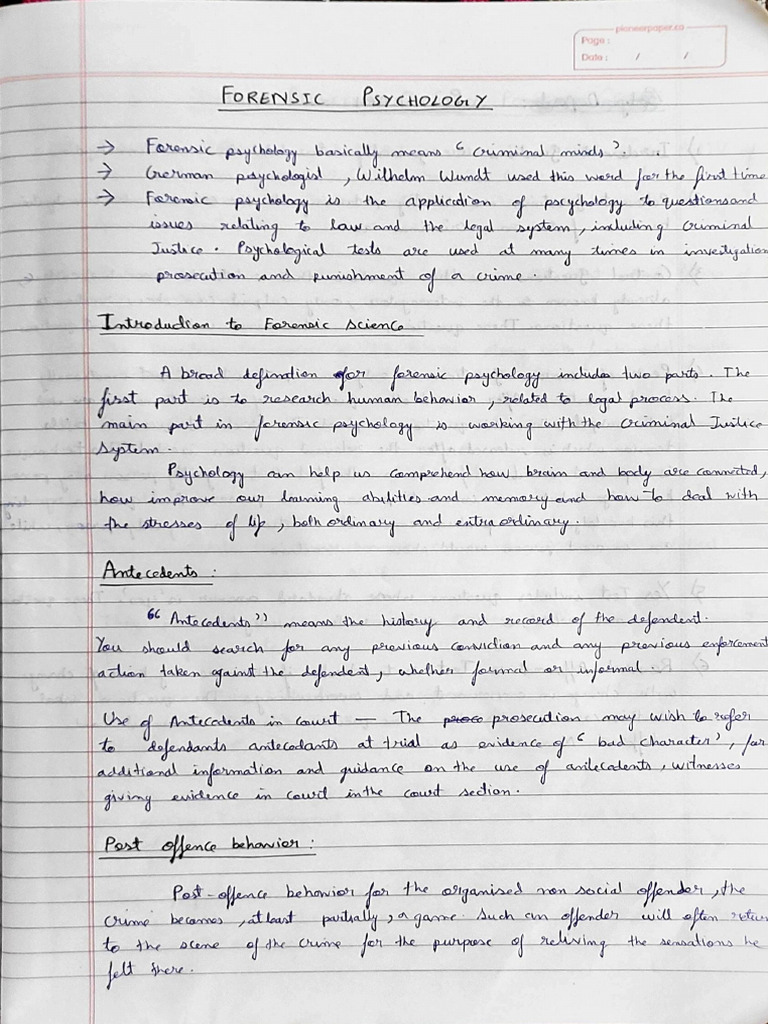 pioneerpaper.co
Page :
Date : / /
FORENSIC PSYCHOLOGY
→ Forensic psychology basically means “ criminal minds ’ .
→ German psychologist , Wilhelm Wundt used this word for the first time
→ Forensic psychology is the application of psychology to questions and
issues relating to law and the legal system , including criminal
Justice . Psychological tests are used at many times in investigation
prosecution and punishment of a crime .
Introduction to Forensic science
A broad defination for forensic psychology includes two parts . The
first part is to research human behavior , related to legal process . The
main part in forensic psychology is working with the criminal Justice
System .
Psychology can help us comprehend how brain and body are connected,
how improve our learning abilities and memory and how to deal with
the stresses of life , both ordinary and extraordinary .
Antecedents :
“ Antecedents ” means the history and record of the defendent .
You should search for any previous conviction and any previous enforcement
action taken against the defendent , whether formal or informal .
Use of Antecedents in court — The prosecution may wish to refer
to defendants antecedants at trial as evidence of ‘ bad character ’ , for
additional information and guidance on the use of antecedents , witnesses
giving evidence in court in the court section .
Post offence behavior :
Post-offence behavior for the organised non social offender , the
crime becomes , at least partially , a game . Such an offender will often return
to the scene of the crime for the purpose of reliving the sensations he
felt there .